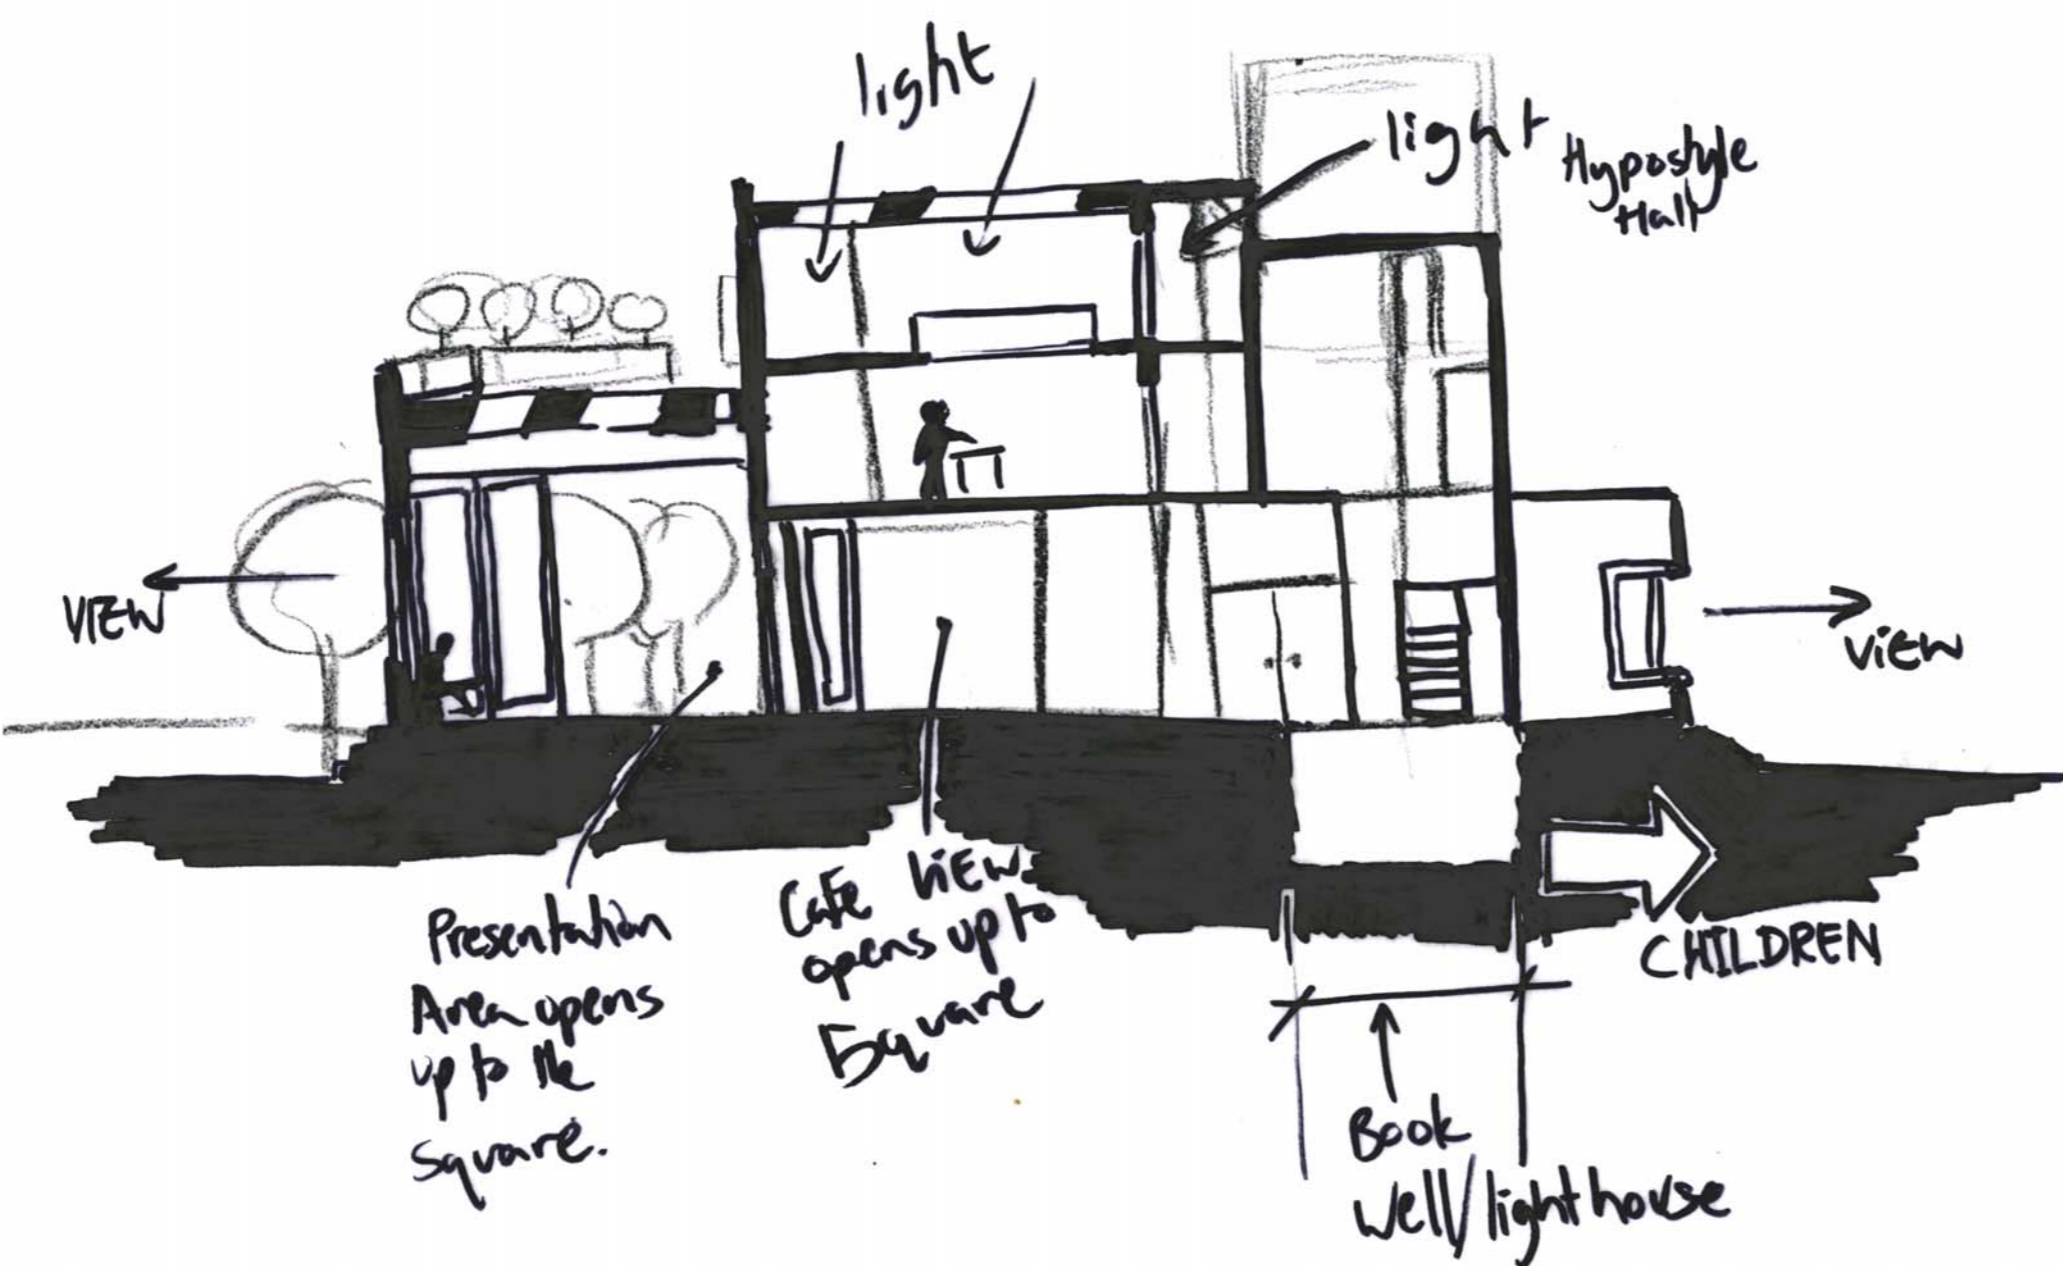 light
light
Hypostyle
Hall
VIEW
VIEW
Presentation
Area opens
up to the
square.
Cafe VIEW
opens up to
Square
CHILDREN
Book
Well/lighthouse